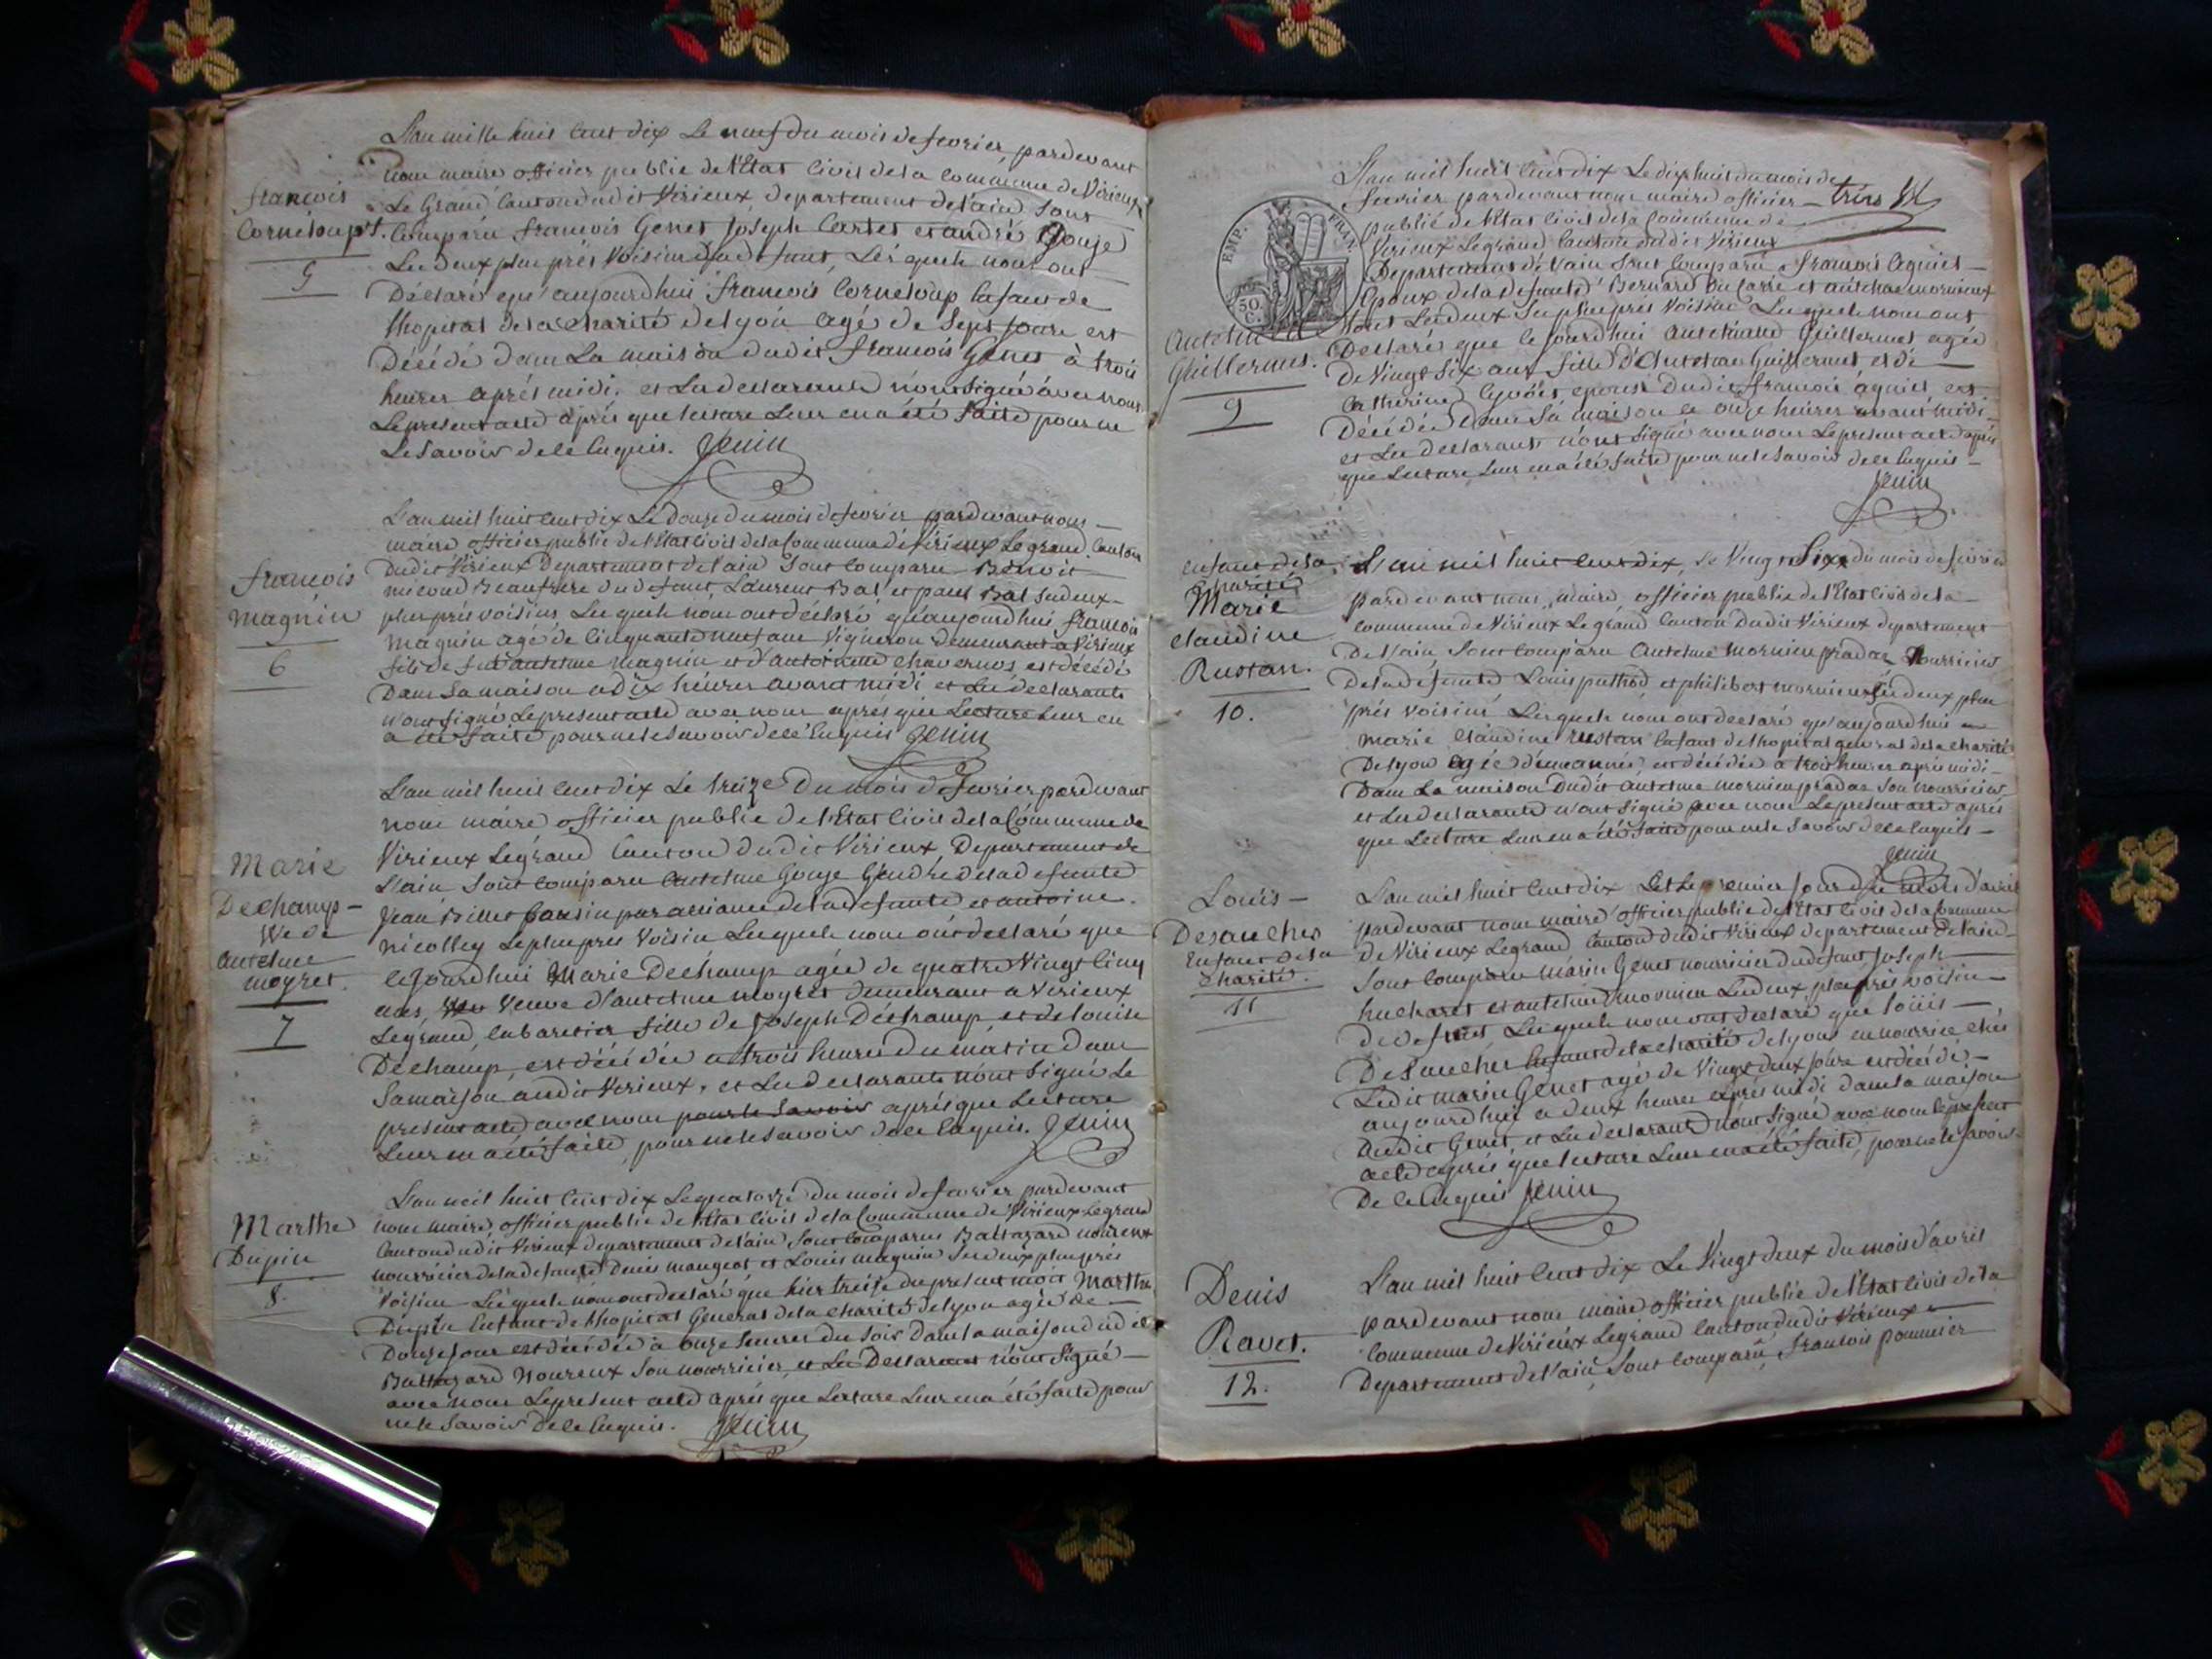 L'an mille huit Cent dix Le neuf du mois de fevrier, pardevant
Nous maire officier public de l'Etat Civil de la Commune de Virieux
françois
Le Grand Canton dudit Virieux, département de l'ain, Sont
Corneloup
Comparu francois Genet Joseph Cartet et andré Gouje
5
Les deux plus prés Voisins dudefunt, Lesquels nous ont
Déclaré qu'aujourdhui francois Corneloup Enfant de
lhopital de la Charité de lyon agé de Sept jours est
Décédé dans La maison dudit francois Genet à trois
heures aprés midi, et Les declarants n'ont Signé avec nous
Le present acte aprés que lecture Leur en a été faite pour ne
Le Savoir de ce Enquis. Jenin
L'an mil huit Cent dix Le Douze du mois de fevrier pardevant nous
maire officier public de l'Etat Civil de la Commune de Virieux Le grand Canton
françois
Dudit Virieux Departement de l'ain Sont Comparu Benoit
micoud Beaufrere du defunt, Laurent Bal et paul Bal Ses deux
magnin
plus prés voisins Lesquels nous ont déclaré qu'aujourdhui francois
magnin agé de Cinquante neuf ans Vigneron Demeurant a Virieux
6
fils de fut antelme magnin et d'antoinette Chavernos est décédé
Dans Sa maison a Dix heures avant midi et Les declarants
n'ont Signé Le present acte avec nous apres que Lecture Leur en
a été faite pour ne le Savoir de ce Enquis Jenin
L'an mil huit Cent dix Le treize Du mois de fevrier pardevant
nous maire officier public de l'Etat Civil de la Commune de
Marie
Virieux Legrand Canton Dudit Virieux Departement de
L'ain Sont Comparu antelme Gouje Gendre de la defunte
Dechamp
Jean Billiet Cousin par alliance de la defunte et antoine
Ve de
nicollet Le plus pres Voisin Lesquels nous ont declaré que
antelme
moyret.
Cejourdhui Marie Dechamp agée de quatre Vingt Cinq
ans, Veuve d'antelme moyret Demeurant a Virieux
7
Legrand, Cabaretier fille de Joseph Dechamp et de louise
Dechamp, est décédée a trois heures du matin Dans
Sa maison audit Virieux, et Les declarants n'ont Signé Le
present acte avec nous pour le Savoir aprés que Lecture
Leur en a été faite, pour ne le Savoir de ce Enquis. Jenin
L'an mil huit Cent dix Le quatorze du mois de fevrier pardevant
Marthe
nous maire, officier public de l'Etat Civil de la Commune de Virieux Le grand
Dupin
Canton dudit Virieux departement de l'ain, Sont Comparus Baltazard noireux
nourricier de la defunte Denis mangeot et Louis magnin Ses deux plus prés
8.
Voisins Lesquels nous ont declaré que hier treize du present mois Marthe
Dupin Enfant de lhopital General de la Charité de lyon agée de
Douze jours est décédée à onze heures du Soir Dans la maison dudit
Baltazard Noureux Son nourricier, et Les Declarants n'ont Signé
avec nous Le present acte aprés que Lecture Leur en a été faite pour
ne le Savoir De ce Enquis. Jenin
L'an mil huit Cent dix Le dix huit du mois de
fevrier pardevant nous maire officier
public de l'Etat Civil de la Commune de
Virieux Legrand Canton dudit Virieux
EMP. FRAN
50
C.
Departement de l'ain Sont Comparu francois aguiet
Epoux de la defunte Bernard Ducarre et antelme mornieux
tous Les deux Ses plus prés Voisins Lesquels nous ont
Antelme
Guillermet.
Declaré que Cejourdhui antelmette Guillermet agée
De Vingt Six ans fille D'Antelme Guillermet et de
9
Catherine epouse Dudit francois aguiet est
Décédée Dans Sa maison a onze heures avant midi
et Les declarants n'ont Signé avec nous Le present acte aprés
que Lecture Leur en a été faite pour ne le Savoir de ce Enquis
Jenin
Enfant de la
Charité
L'an mil huit Cent dix, Le Vingt Six du mois de fevrier
Marie
pardevant nous, maire, officier public de l'Etat Civil de la
Claudine
Commune de Virieux Le grand Canton Dudit Virieux departement
Rustan.
De l'ain, Sont Comparu antelme mornieu pradaz Nourricier
De la defunte Louis puthod et philibert mornieux Ses deux plus
10.
prés Voisins Lesquels nous ont declaré qu'aujourdhui
marie Claudine rustan Enfant de lhopital general de la charité
De lyon agée d'une année est décédée à trois heures aprés midi
Dans La maison Dudit antelme mornieu pradaz Son nourricier
et Les declarants n'ont Signé avec nous Le present acte aprés
que Lecture Leur en a été faite pour ne le Savoir de ce Enquis
Jenin
Louis
L'an mil huit Cent dix Le premier jour du mois d'avril
Desauches
pardevant nous maire officier public de l'Etat Civil de la Commune
Enfant de la
Charité.
de Virieux Legrand Canton dudit Virieux departement de l'ain
Sont Comparu marin Genet nourricier du defunt Joseph
11
hucharet et antelme mornieu Les deux plus prés voisins
De defunt Lesquels nous ont declaré que loüis
Desauches Enfant de la Charité de lyon en nourrice chés
Ledit marin Genet agé de Vingt deux jours est décédé
aujourdhui a deux heures aprés midi dans la maison
Dudit Genet, et Les declarants n'ont Signé avec nous le present
acte aprés que lecture Leur en a été faite, pour ne le Savoir
De ce Enquis Jenin
Denis
L'an mil huit Cent dix Le Vingt deux du mois d'avril
Ravet.
pardevant nous maire officier public de l'Etat Civil de la
Commune de Virieux Legrand Canton dudit Virieux
12.
Departement de l'ain, Sont Comparû, francois pommier